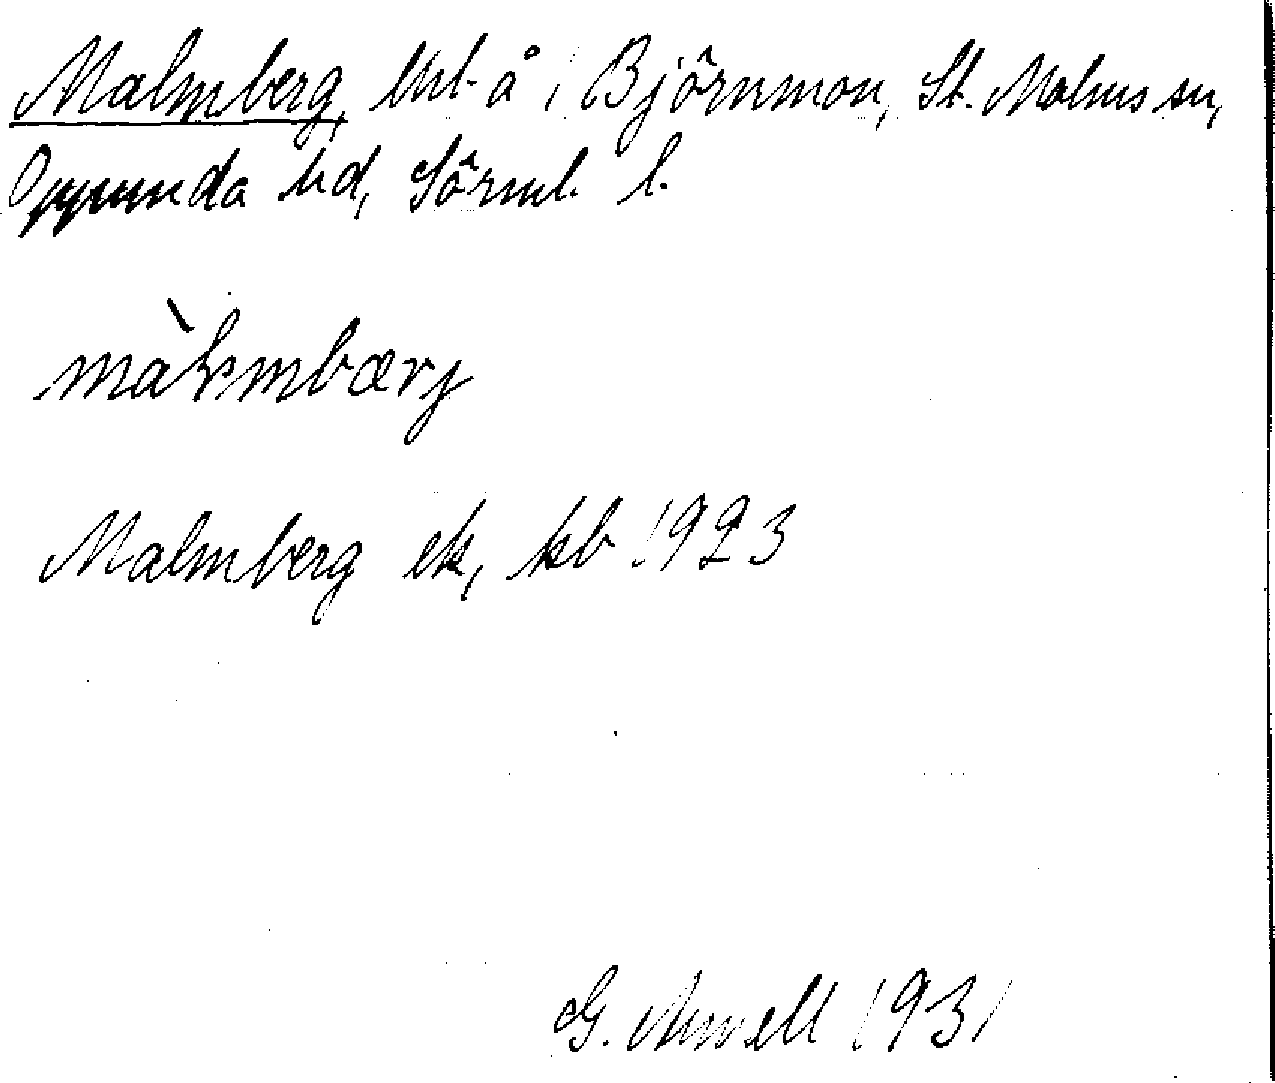 Malmberg, lht å i Björnmon, St. Malms sn,
Oppunda hd, Sörml. l.
màlmbærj
Malmberg ek, kb 1923
G. Anvell 1931